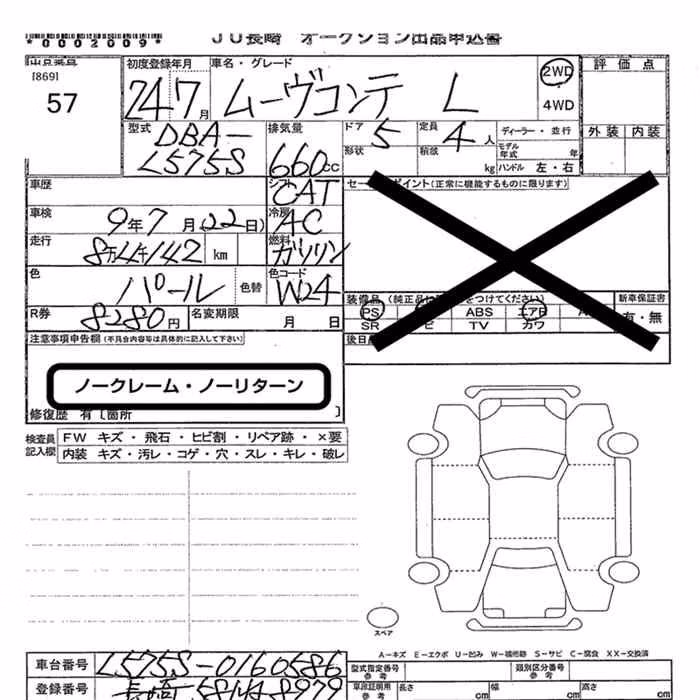 JU長崎 オークション出品申込書
*0002009*
出品番号 初度登録年月 車名・グレード 2WD 評価点
[869]
57 24 7月 ムーヴコンテ L ・ 4WD
型式 排気量 ドア 定員 ディーラー・並行 外装 内装
DBA- 5 4人
L575S 660cc 形状 積載 kg モデル年式 年
ハンドル 左・右
車歴 シフト CAT セールスポイント(正常に機能するものに限ります)
車検 9年7月(22日) 冷房 AC
走行 8万4千142 km 燃料 ガソリン
色 パール 色替 色コード W24
装備品 (純正品に をつけてください) 新車保証書
R券 8280円 名変期限 月 日 PS ABS エアB 有・無
SR TV カワ
注意事項申告欄(不具合内容等は具体的に記入して下さい) 後日
ノークレーム・ノーリターン
修復歴 有[箇所 ]
検査員記入欄 FW キズ・飛石・ヒビ割・リペア跡・×要
内装 キズ・汚レ・コゲ・穴・スレ・キレ・破レ
スペア
A-キズ E-エクボ U-凹み W-補修跡 S-サビ C-腐食 XX-交換済
車台番号 L575S-0160586 型式指定番号 参考 類別区分番号 参考
登録番号 長崎 581 8979 車庫証明用 参考 長さ cm 幅 cm 高さ cm